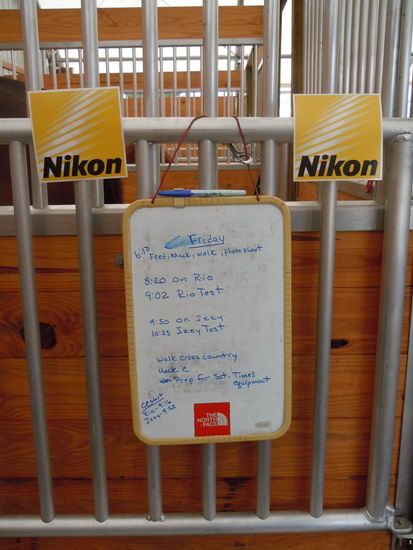 Nikon
Nikon
Friday
6:10 Feed, Muck, walk, photo shoot
8:20 on Rio
9:02 Rio Test
9:50 on Izzy
10:23 Izzy Test
Walk cross country
Hack
Prep for Sat. Times
equipment
Rio-9:16
Izzy-9:52
THE
NORTH
FACE